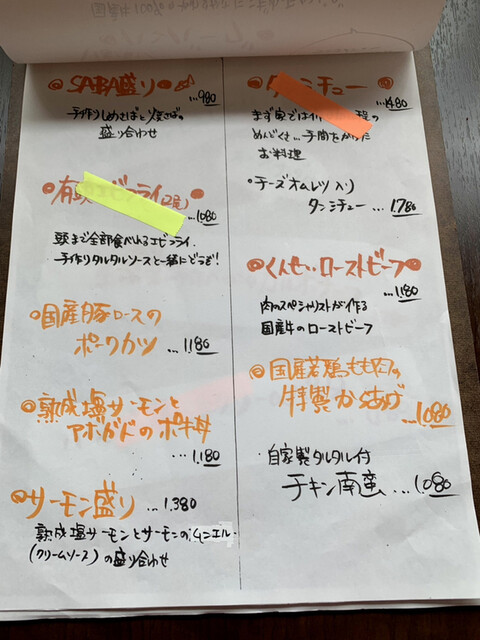 SABA盛り
...980
手作りしめさばと焼さばの
盛り合わせ
有頭エビフライ(2尾)
...1080
頭まで全部食べれるエビフライ.
手作りタルタルソースと一緒にどうぞ!
国産豚ロースの
ポークカツ
...1180
熟成塩サーモンと
アボガドのポキ丼
...1,180
サーモン盛り ...1.380
熟成塩サーモンとサーモンのムニエル・
(クリームソース)の盛り合わせ
タンシチュー
...1480
まず家では作 程の
めんどくさ...手間をかけた
お料理
・チーズオムレツ入り
タンシチュー ...1.780
くんせいローストビーフ
...1,180
肉のスペシャリストが作る
国産牛のローストビーフ
国産若鶏もも肉の
特製からあげ
...1,080
自家製タルタル付
チキン南蛮...1,080